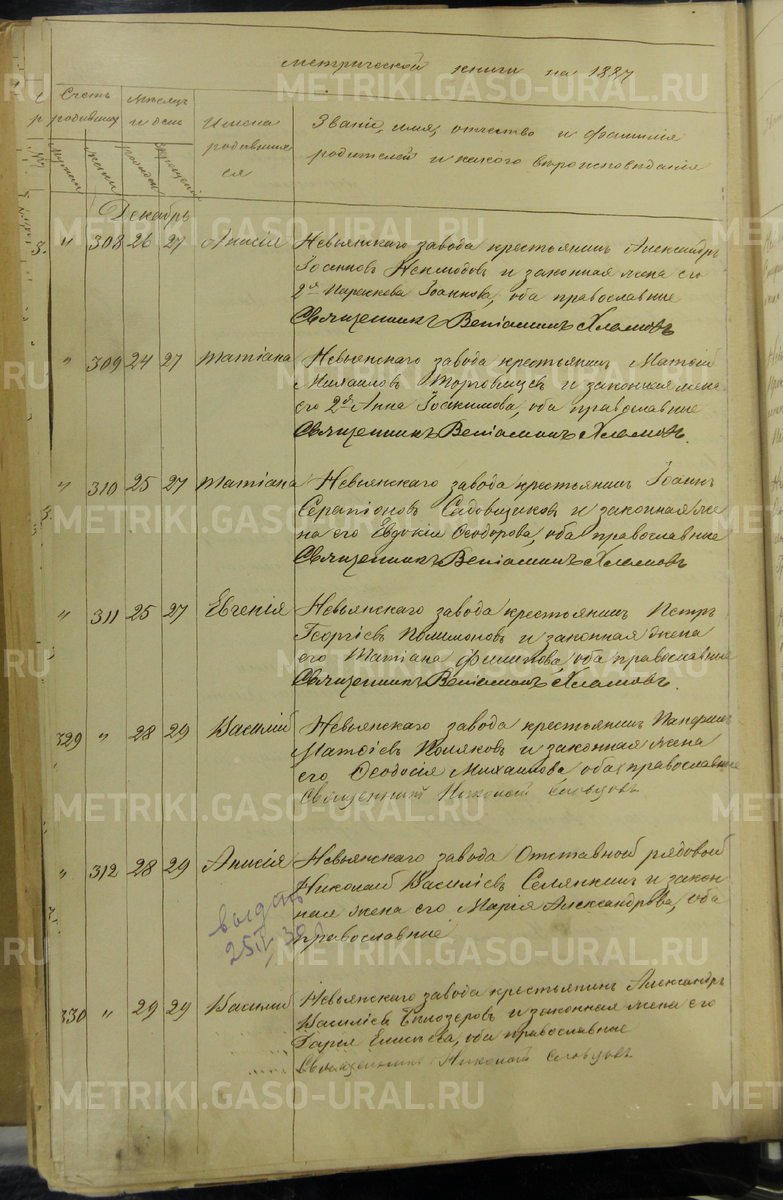 метрической книги на 1887
Счетъ родившихся
Мѣсяцъ и день
Имена родившихся
Званіе, имя, отчество и фамилія
родителей и какого вѣроисповѣданія
Декабрь
" 308 26 27 Анисія Невьянскаго завода крестьянинъ Александръ
Іоанновъ и законная жена его
2я Параскева Іоаннова, оба православные
Священникъ Веніаминъ Хламовъ
" 309 24 27 Татіана Невьянскаго завода крестьянинъ Матѳій
Михаиловъ и законная жена
его 2я Анна Іоакимова, оба православные
Священникъ Веніаминъ Хламовъ.
" 310 25 27 Татіана Невьянскаго завода крестьянинъ Іоаннъ
Серапіоновъ Садовщиковъ и законная же
на его Евдокія Ѳеодорова, оба православные
Священникъ Веніаминъ Хламовъ
" 311 25 27 Евгенія Невьянскаго завода крестьянинъ Петръ
Георгіевъ Филимоновъ и законная жена
его Татіана Филипова, оба православные
Священникъ Веніаминъ Хламовъ.
329 " 28 29 Василій Невьянскаго завода крестьянинъ
Матѳіевъ Поляковъ и законная жена
его Ѳеодосія Михаилова, оба православные
Священникъ Николай Словцовъ
" 312 28 29 Анисія Невьянскаго завода Отставной рядовой
Николай Василіевъ Селянкинъ и закон
ная жена его Марія Александрова, оба
православные
выдан
25
330 " 29 29 Василій Невьянскаго завода крестьянинъ Александръ
Василіевъ Бѣлозеровъ и законная жена его
Дарія Елисѣева, оба православные
Священникъ Николай Словцовъ
METRIKI.GASO-URAL.RU
METRIKI.GASO-URAL.RU
METRIKI.GASO-URAL.RU
METRIKI.GASO-URAL.RU
METRIKI.GASO-URAL.RU
METRIKI.GASO-URAL.RU
METRIKI.GASO-URAL.RU
METRIKI.GASO-URAL.RU